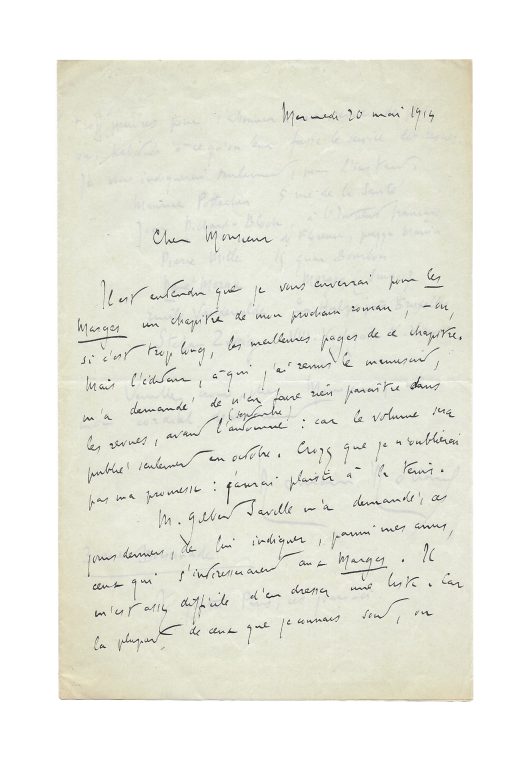 Mercredi 20 mai 1914
Cher Monsieur
Il est entendu que je vous enverrai pour Les
Marges un chapitre de mon prochain roman, – ou,
si c'est trop long, les meilleures pages de ce chapitre.
Mais l'éditeur, à qui j'ai remis le manuscrit,
m'a demandé de n'en faire rien paraître dans
les revues, avant l'automne (septembre) : car le volume sera
publié seulement en octobre. Croyez que je n'oublierai
pas ma promesse : j'aurai plaisir à la tenir.
M. Gilbert m'a demandé, ces
jours derniers, de lui indiquer, parmi mes amis,
ceux qui s'intéresseraient aux Marges. Il
m'est assez difficile d'en dresser une liste. Car
la plupart de ceux que je connais sont, ou